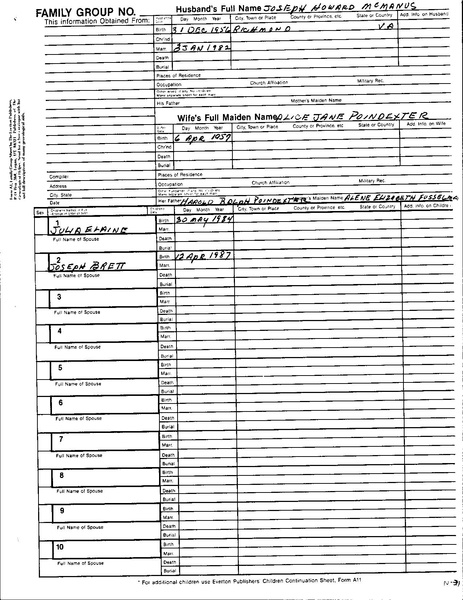 FAMILY GROUP NO.
This Information Obtained From:
Husband's Full Name JOSEPH HOWARD McMANUS
Day Month Year City, Town or Place County or Province, etc. State or Country Add. Info on Husband
Birth 31 DEC 1956 RICHMOND VA
Chr'nd
Marr. 23 JAN 1982
Death
Burial
Places of Residence
Occupation Church Affiliation Military Rec.
His Father Mother's Maiden Name
Wife's Full Maiden Name ALICE JANE POINDEXTER
Day Month Year City, Town or Place County or Province, etc. State or Country Add. Info on Wife
Birth 6 APR 1957
Chr'nd
Death
Burial
Compiler
Address
City, State
Date
Places of Residence
Occupation Church Affiliation Military Rec.
Her Father HAROLD ROLPH POINDEXTER Mother's Maiden Name ALENE ELIZABETH
Sex
Day Month Year City, Town or Place County or Province, etc. State or Country Add. Info on Children
1
JULIA ELAINE
Full Name of Spouse
Birth 30 MAY 1984
Marr.
Death
Burial
2
JOSEPH BRETT
Full Name of Spouse
Birth 12 APR 1987
Marr.
Death
Burial
3
Full Name of Spouse
Birth
Marr.
Death
Burial
4
Full Name of Spouse
Birth
Marr.
Death
Burial
5
Full Name of Spouse
Birth
Marr.
Death
Burial
6
Full Name of Spouse
Birth
Marr.
Death
Burial
7
Full Name of Spouse
Birth
Marr.
Death
Burial
8
Full Name of Spouse
Birth
Marr.
Death
Burial
9
Full Name of Spouse
Birth
Marr.
Death
Burial
10
Full Name of Spouse
Birth
Marr.
Death
Burial
*For additional children use Everton Publishers' Children Continuation Sheet, Form A11